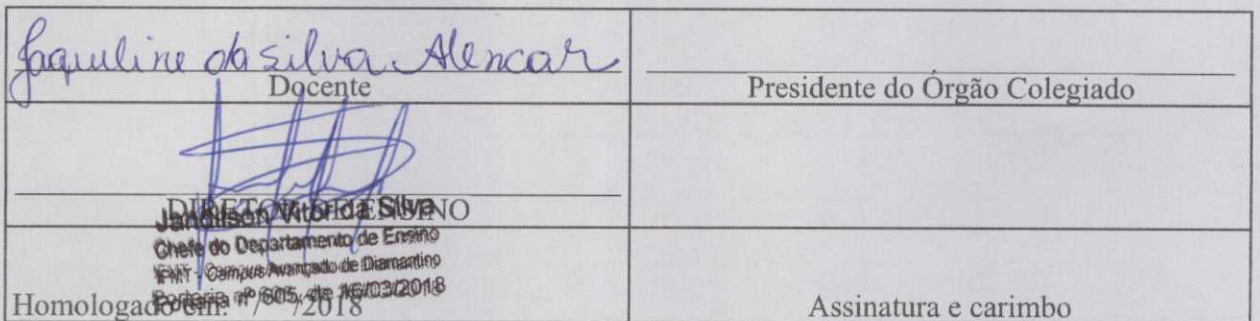 Jaqueline da Silva Alencar
Docente
Presidente do Órgão Colegiado
DIRETOR DE ENSINO
Jandilson Vitor da Silva
Chefe do Departamento de Ensino
IFMT - Campus Avançado de Diamantino
Portaria nº 605, de 16/03/2018
Homologado em: / /2018
Assinatura e carimbo